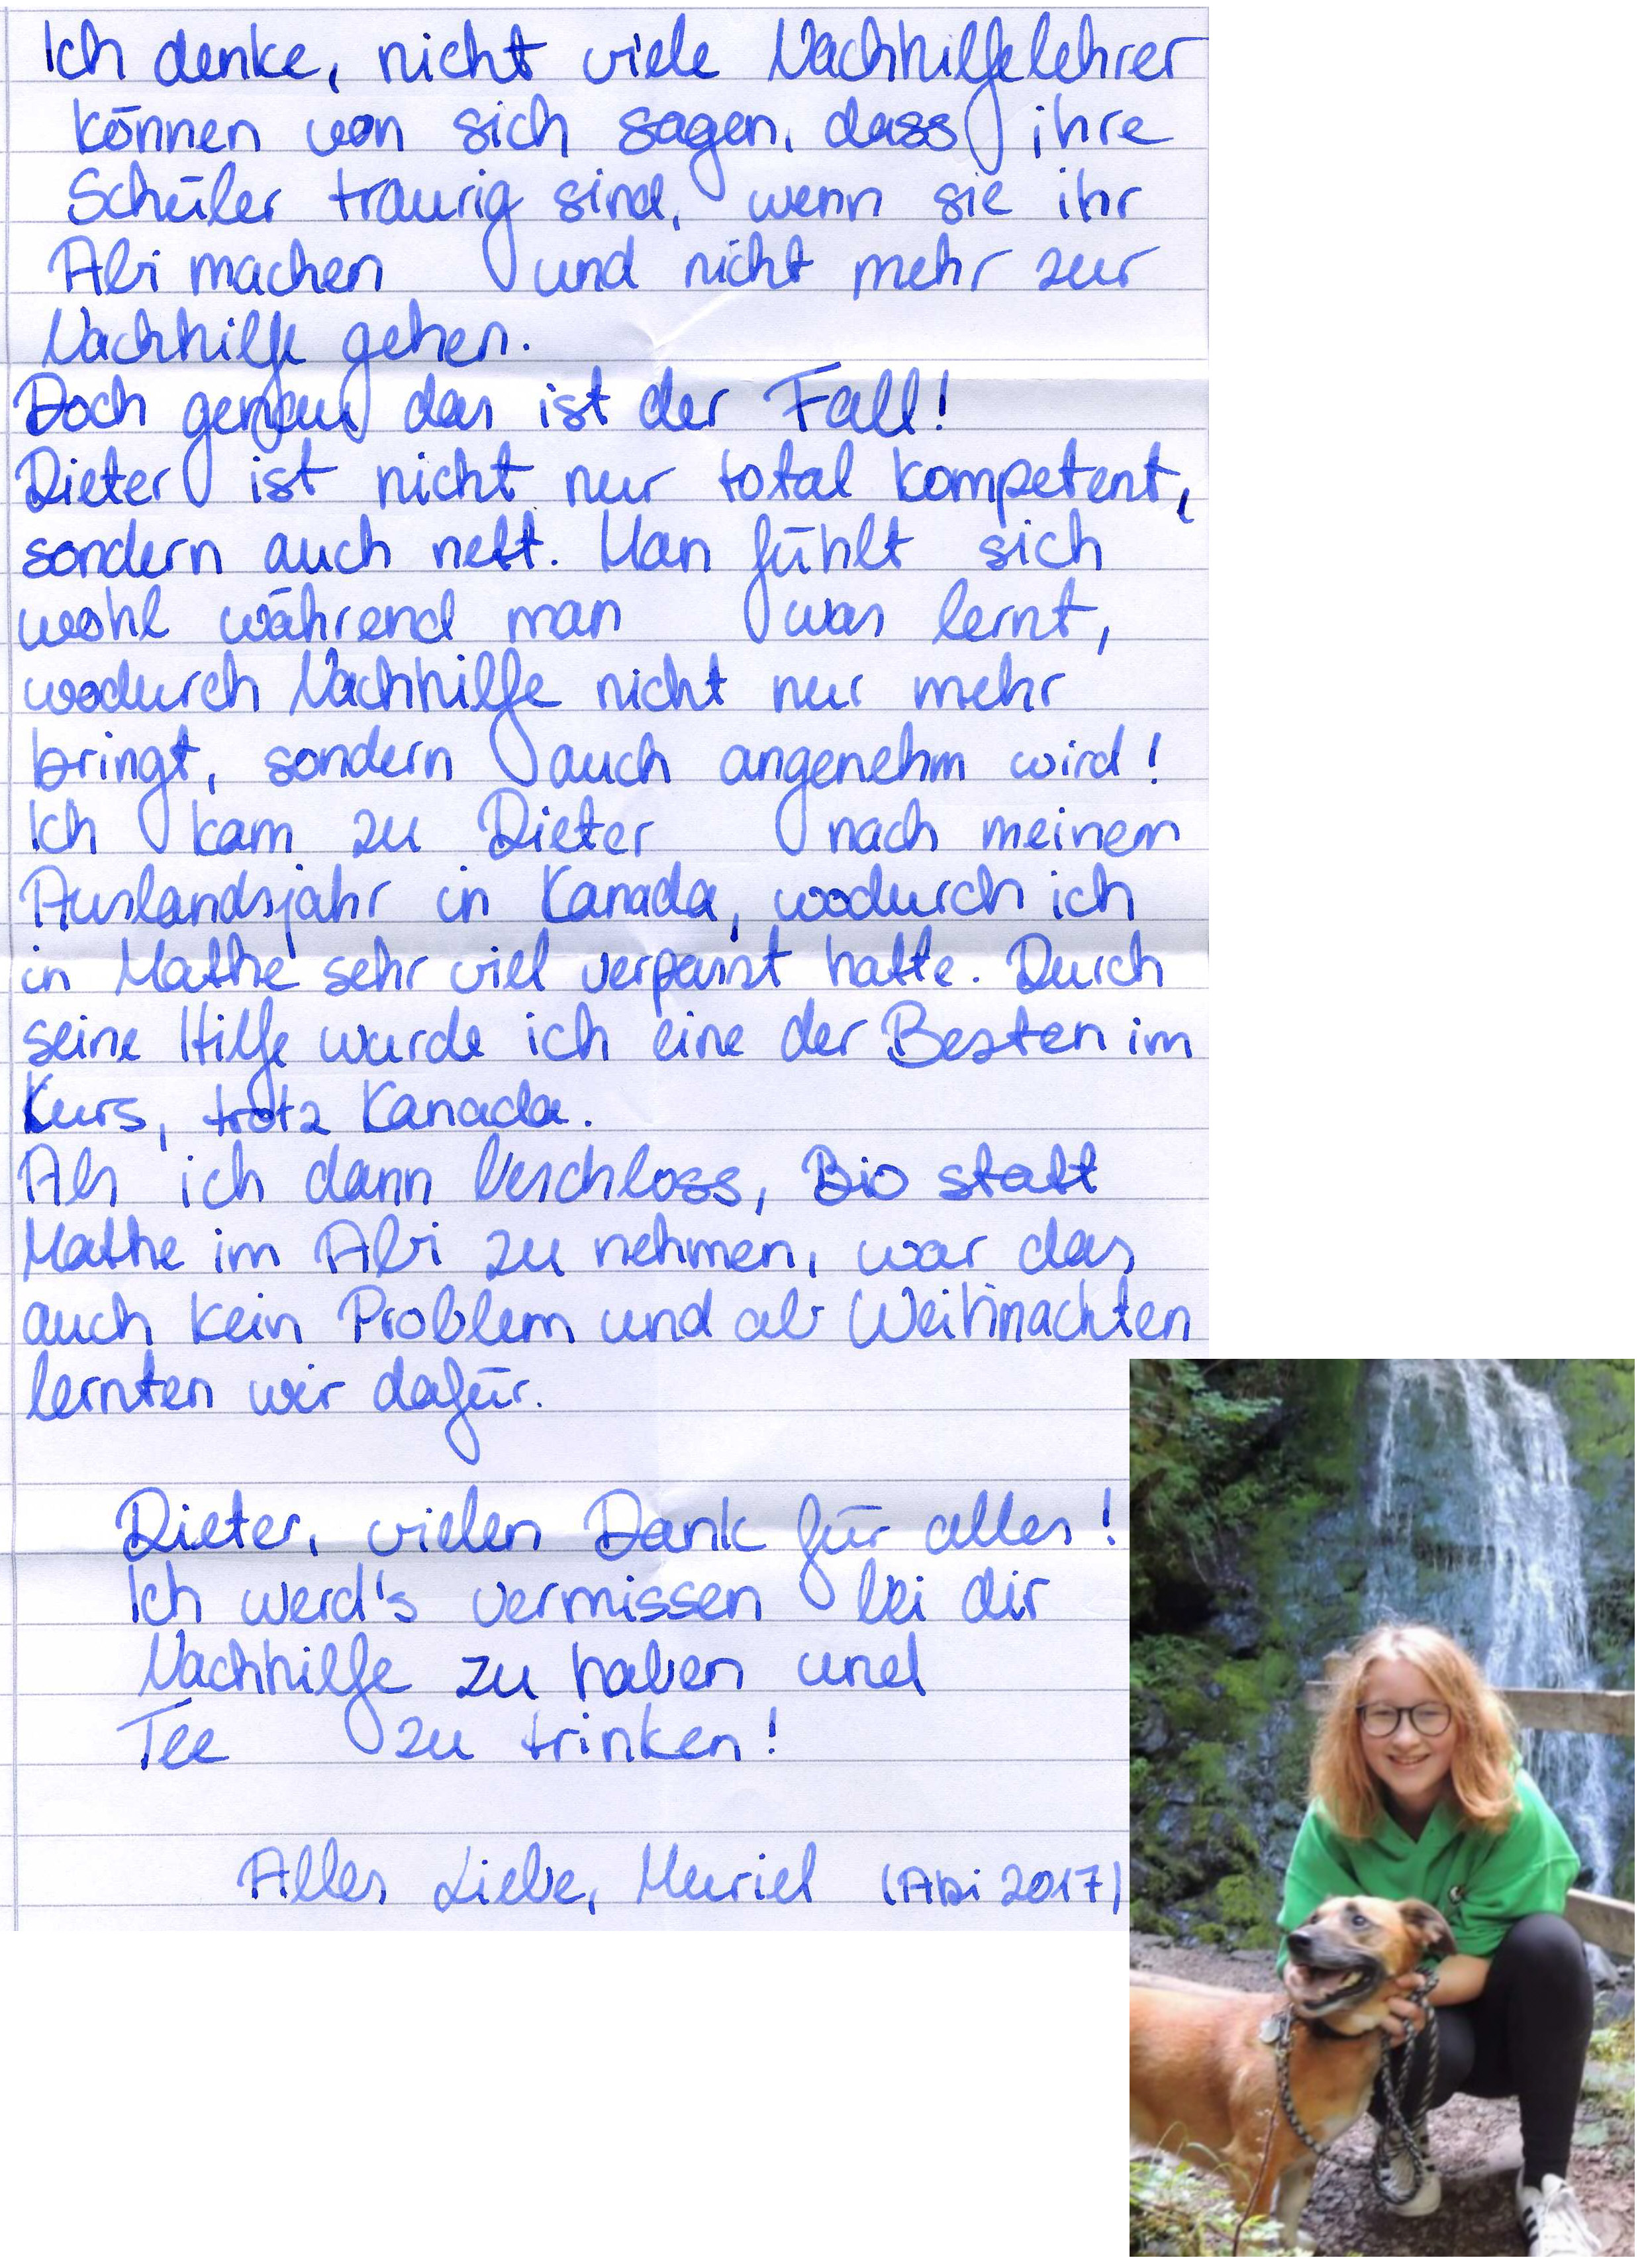 Ich denke, nicht viele Nachhilfelehrer
können von sich sagen, dass ihre
Schüler traurig sind, wenn sie ihr
Abi machen und nicht mehr zur
Nachhilfe gehen.
Doch genau das ist der Fall!
Dieter ist nicht nur total kompetent,
sondern auch nett. Man fühlt sich
wohl während man was lernt,
wodurch Nachhilfe nicht nur mehr
bringt, sondern auch angenehm wird!
Ich kam zu Dieter nach meinem
Auslandsjahr in Kanada, wodurch ich
in Mathe sehr viel verpasst hatte. Durch
seine Hilfe wurde ich eine der Besten im
Kurs, trotz Kanada.
Als ich dann beschloss, Bio statt
Mathe im Abi zu nehmen, war das
auch kein Problem und ab Weihnachten
lernten wir dafür.
Dieter, vielen Dank für alles!
Ich werd's vermissen bei dir
Nachhilfe zu haben und
Tee zu trinken!
Alles Liebe, Muriel (Abi 2017)